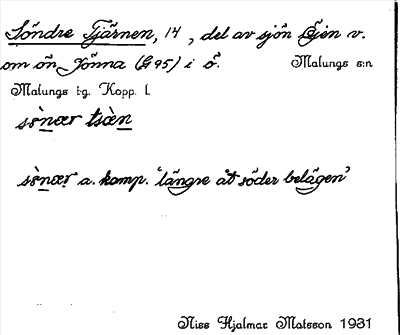 Söndre Tjärnen, 14 , del av sjön Öjen v.
om ön Jönna (G 95) i ö. Malungs s:n
Malungs t-g. Kopp. l.
a. komp. 'längre åt söder belägen'
Niss Hjalmar Matsson 1931